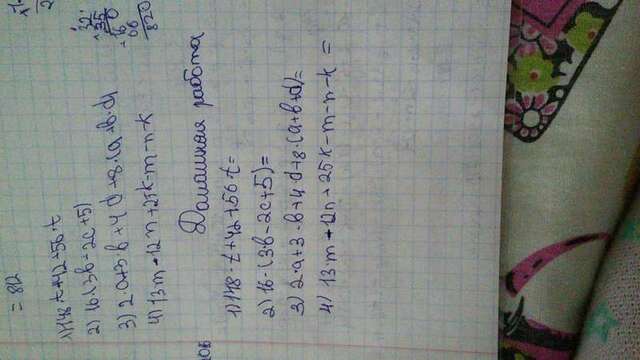 = 812
1) 148·t+42+56·t
2) 16·(3b-2c+5)
3) 2·a+3·b+4d+8·(a+b·d)
4) 13m-12n+25k-m-n-k
32
35
16 0
820
Домашная работа
1) 148·t+42+56·t=
2) 16·(3·b-2c+5)=
3) 2·a+3·b+4·d+8·(a+b+d)=
4) 13·m-12n+25k-m-n-k =